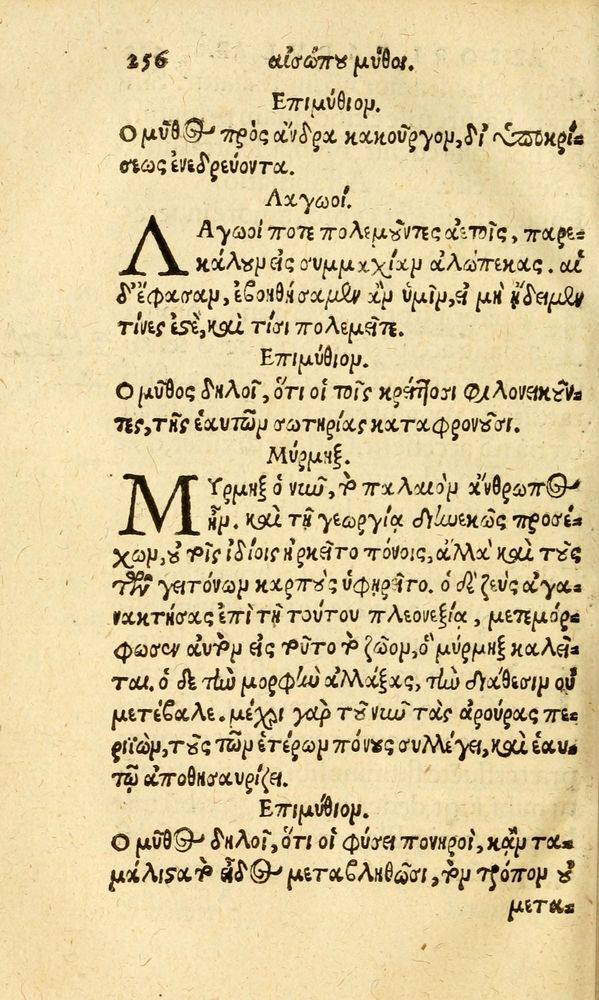 256 αἰσώπου μῦθοι.
Ἐπιμύθιον.
Ὁ μῦθος πρὸς ἄνδρα κακοῦργον, δι' ὑποκρί-
σεως ἐνεδρεύοντα.
Λαγωοί.
ΛΑγωοί ποτε πολεμοῦντες ἀετοῖς, παρε-
κάλουν εἰς συμμαχίαν ἀλώπεκας. αἱ
δ' ἔφασαν, ἐβοηθήσαμεν ἂν ὑμῖν, εἰ μὴ ᾔδειμεν
τίνες ἐστὲ, καὶ τίσι πολεμεῖτε.
Ἐπιμύθιον.
Ὁ μῦθος δηλοῖ, ὅτι οἱ τοῖς κρείττοσι φιλονεικοῦν-
τες, τῆς ἑαυτῶν σωτηρίας καταφρονοῦσι.
Μύρμηξ.
ΜΥρμηξ ὁ νῦν, τὸ παλαιὸν ἄνθρωπος
ἦν. καὶ τῇ γεωργίᾳ διηνεκῶς προσέ-
χων, οὐ τοῖς ἰδίοις ἠρκεῖτο πόνοις, ἀλλὰ καὶ τοὺς
τῶν γειτόνων καρποὺς ὑφῃρεῖτο. ὁ δὲ ζεὺς ἀγα-
νακτήσας ἐπὶ τῇ τούτου πλεονεξίᾳ, μετεμόρ-
φωσεν αὐτὸν εἰς τοῦτο τὸ ζῶον, ὃ μύρμηξ καλεῖ-
ται. ὁ δὲ τὴν μορφὴν ἀλλάξας, τὴν διάθεσιν οὐ
μετέβαλε. μέχρι γὰρ τοῦ νῦν τὰς ἀρούρας πε-
ριϊὼν, τοὺς τῶν ἑτέρων πόνους συλλέγει, καὶ ἑαυ-
τῷ ἀποθησαυρίζει.
Ἐπιμύθιον.
Ὁ μῦθος δηλοῖ, ὅτι οἱ φύσει πονηροὶ, κἂν τα-
μάλιστα τὸ εἶδος μεταβληθῶσι, τὸν τρόπον οὐ
μετα-